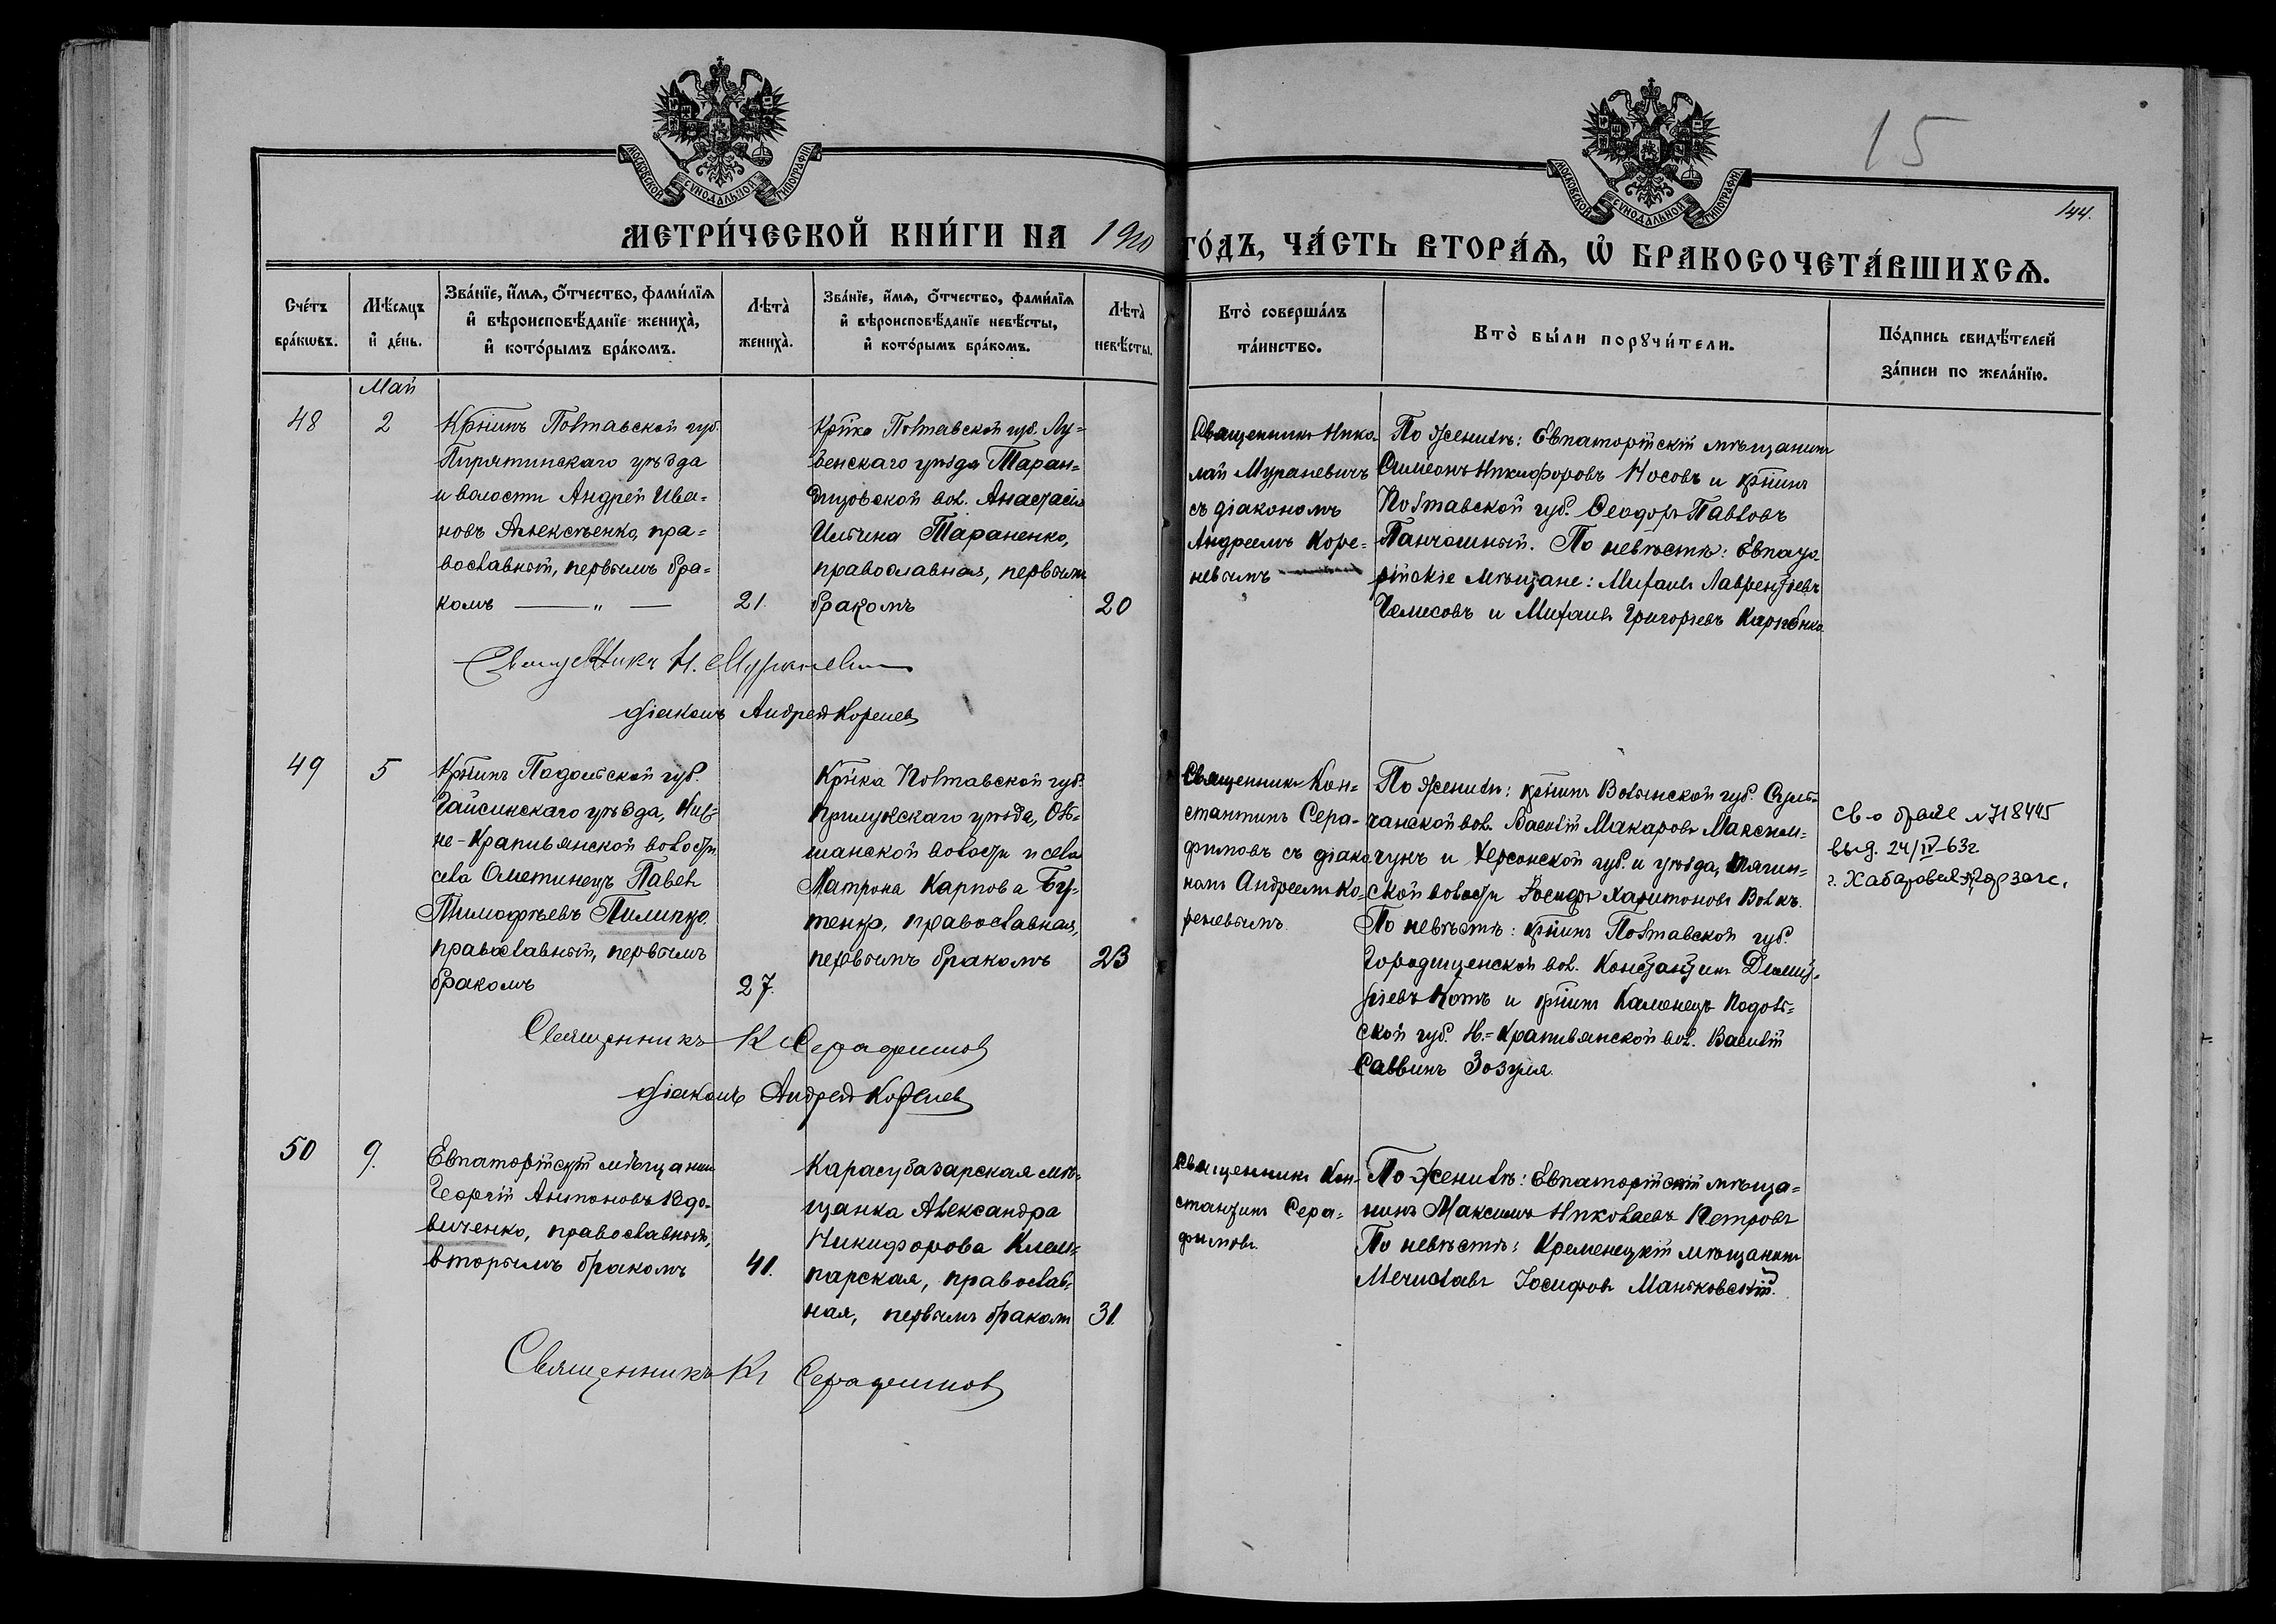 МОСКОВСКОЙ СѴНОДАЛЬНОЙ ТИПОГРАФІИ
МОСКОВСКОЙ СѴНОДАЛЬНОЙ ТИПОГРАФІИ
15
144.
МЕТРИ́ЧЕСКОЙ КНИ́ГИ НА 1920 ГО́ДЪ, ЧА́СТЬ ВТОРА́Ѧ, Ѡ҆ БРАКОСОЧЕТА́ВШИХСѦ.
Сче́тъ
бра́кѡвъ.
Мѣ́сѧцъ
и҆ де́нь.
Зва́нїе, и҆́мѧ, ѻ҆́тчество, фами́лїѧ
и҆ вѣроисповѣ́данїе жениха̀,
и҆ кото́рымъ бра́комъ.
Лѣта̀
жениха̀.
Зва́нїе, и҆́мѧ, ѻ҆́тчество, фами́лїѧ
и҆ вѣроисповѣ́данїе невѣ́сты,
и҆ кото́рымъ бра́комъ.
Лѣта̀
невѣ́сты.
Кто̀ соверша́лъ
та́инство.
Кто̀ бы́ли порꙋчи́тели.
По́дпись свидѣ́телей
за́писи по жела́нїю.
Май
48
2
Крнинъ Полтавской губ.
Пирятинскаго уѣзда
и волости Андрей Ива-
новъ Алексѣенко, пра-
вославный, первымъ бра-
комъ — „ —
21.
Крнка Полтавской губ. Лу-
бенскаго уѣзда Таран-
динцовской вол. Анастасія
Ильина Тараненко,
православная, первымъ
бракомъ
20
Священникъ Нико-
лай Мураневичъ
съ діакономъ
Андреемъ Коре-
невымъ
По женихѣ: Евпаторійскій мѣщанинъ
Симеонъ Никифоровъ Носовъ и крнинъ
Полтавской губ. Ѳеодоръ Павловъ
Панчошный. По невѣстѣ: Евпато-
рійскіе мѣщане: Михаилъ Лаврентіевъ
Чемисовъ и Михаилъ Григорьевъ Карпенко.
Священникъ Н. Мураневичъ
Діаконъ Андрей Коренев
49
5
Крнинъ Подольской губ.
Гайсинскаго уѣзда, Ниж-
не-Крапивянской волости
села Ометинецъ Павелъ
Тимофѣевъ Пилипко,
православный, первымъ
бракомъ
27.
Крнка Полтавской губ.
Прилукскаго уѣзда, Оль-
шанской волости и села
Матрона Карпова Бу-
тенко, православная,
первымъ бракомъ
23
Священникъ Кон-
стантинъ Сера-
фимовъ съ діако-
номъ Андреемъ Ко-
реневымъ
По женихѣ: крнинъ Волынской губ. Суль-
чанской вол. Василій Макаровъ Максим-
чукъ и Херсонской губ. и уѣзда, Тягин-
ской волости Іосифъ Харитоновъ Волкъ.
По невѣстѣ: крнинъ Полтавской губ.
Городищенской вол. Константинъ Димит-
ріевъ Котъ и крнинъ Каменецъ Подоль-
ской губ. Н.-Крапивянской вол. Василій
Саввинъ Зозуля.
Св-о о браке № 718445
выд. 24/IV-63г
г. Хабаровск загс.
Священникъ К Серафимов
Діаконъ Андрей Коренев
50
9.
Евпаторійскій мѣщанинъ
Георгій Антоновъ Вдо-
виченко, православный,
вторымъ бракомъ
41.
Карасубазарская мѣ-
щанка Александра
Никифорова Клем-
парская, православ-
ная, первымъ бракомъ
31.
Священникъ Кон-
стантинъ Сера-
фимовъ.
По женихѣ: Евпаторійскій мѣща-
нинъ Максимъ Николаевъ Петровъ
По невѣстѣ: Кременецкій мѣщанинъ
Мечиславъ Іосифовъ Маньковскій.
Священникъ Кн Серафимов